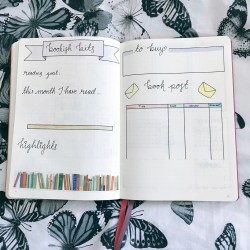 bookish bits
reading goal:
this month I have read...
highlights
to buy:
book post